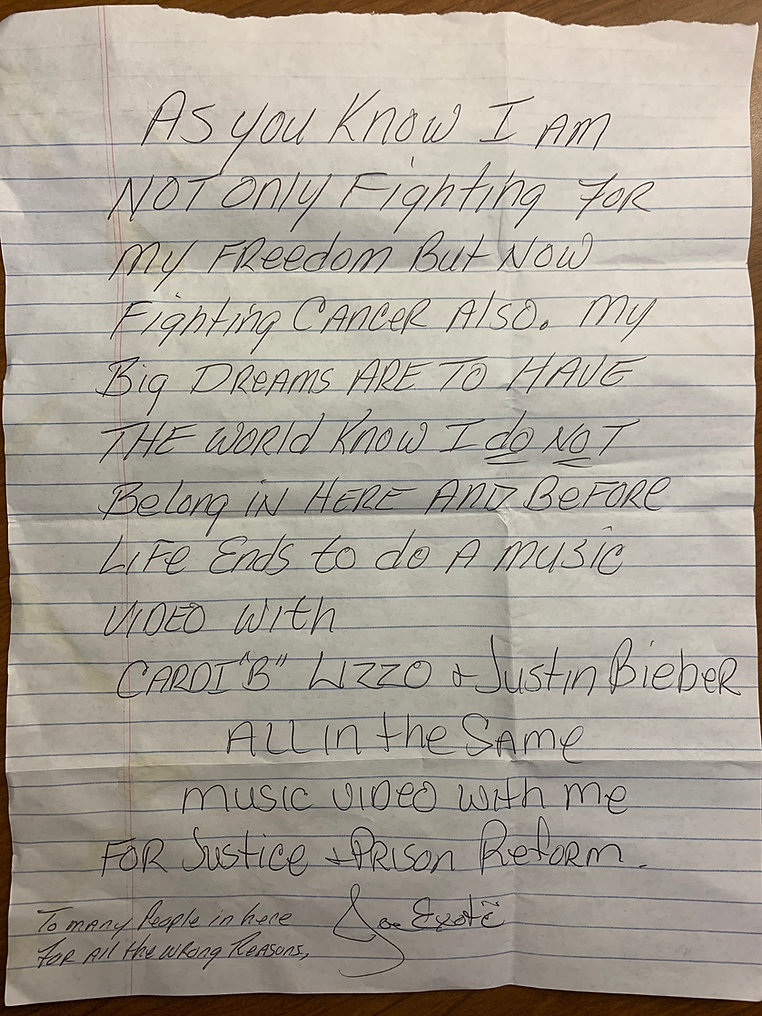 As you know I am
not only fighting for
my freedom but now
fighting cancer also. My
big dreams are to have
the world know I do not
belong in here and before
life ends to do a music
video with
Cardi "B" Lizzo + Justin Bieber
all in the same
music video with me
for justice + prison reform.
To many people in here
for all the wrong reasons,
Joe Exotic